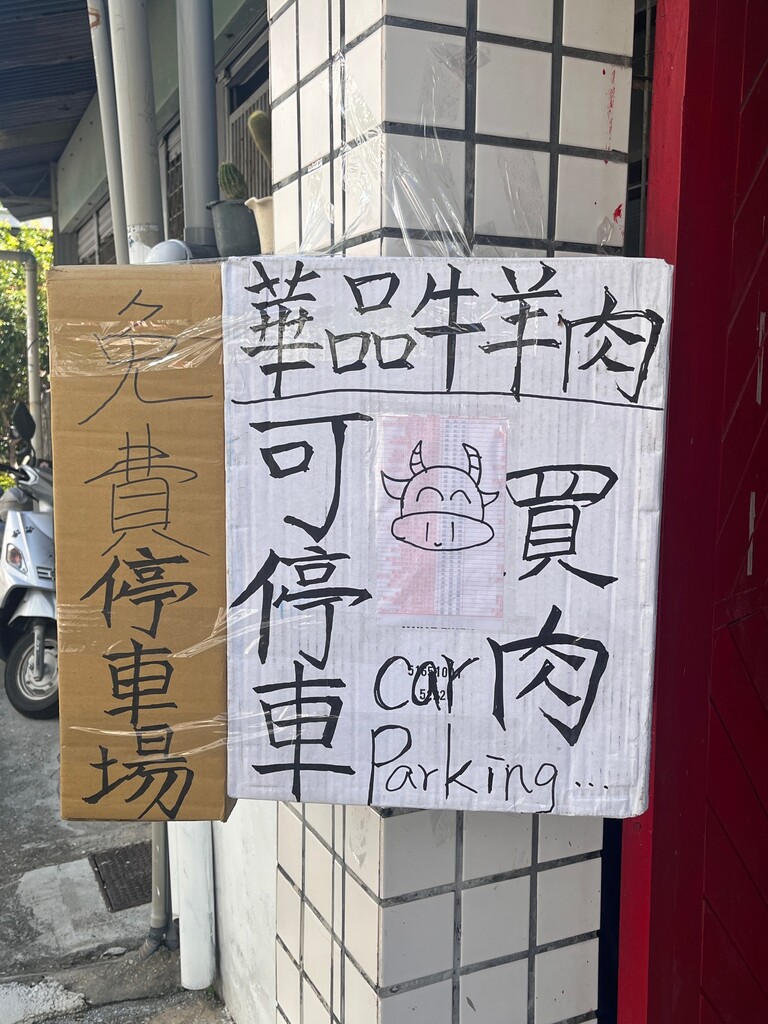 華品牛羊肉
買肉
可停車
car
Parking...
免費停車場